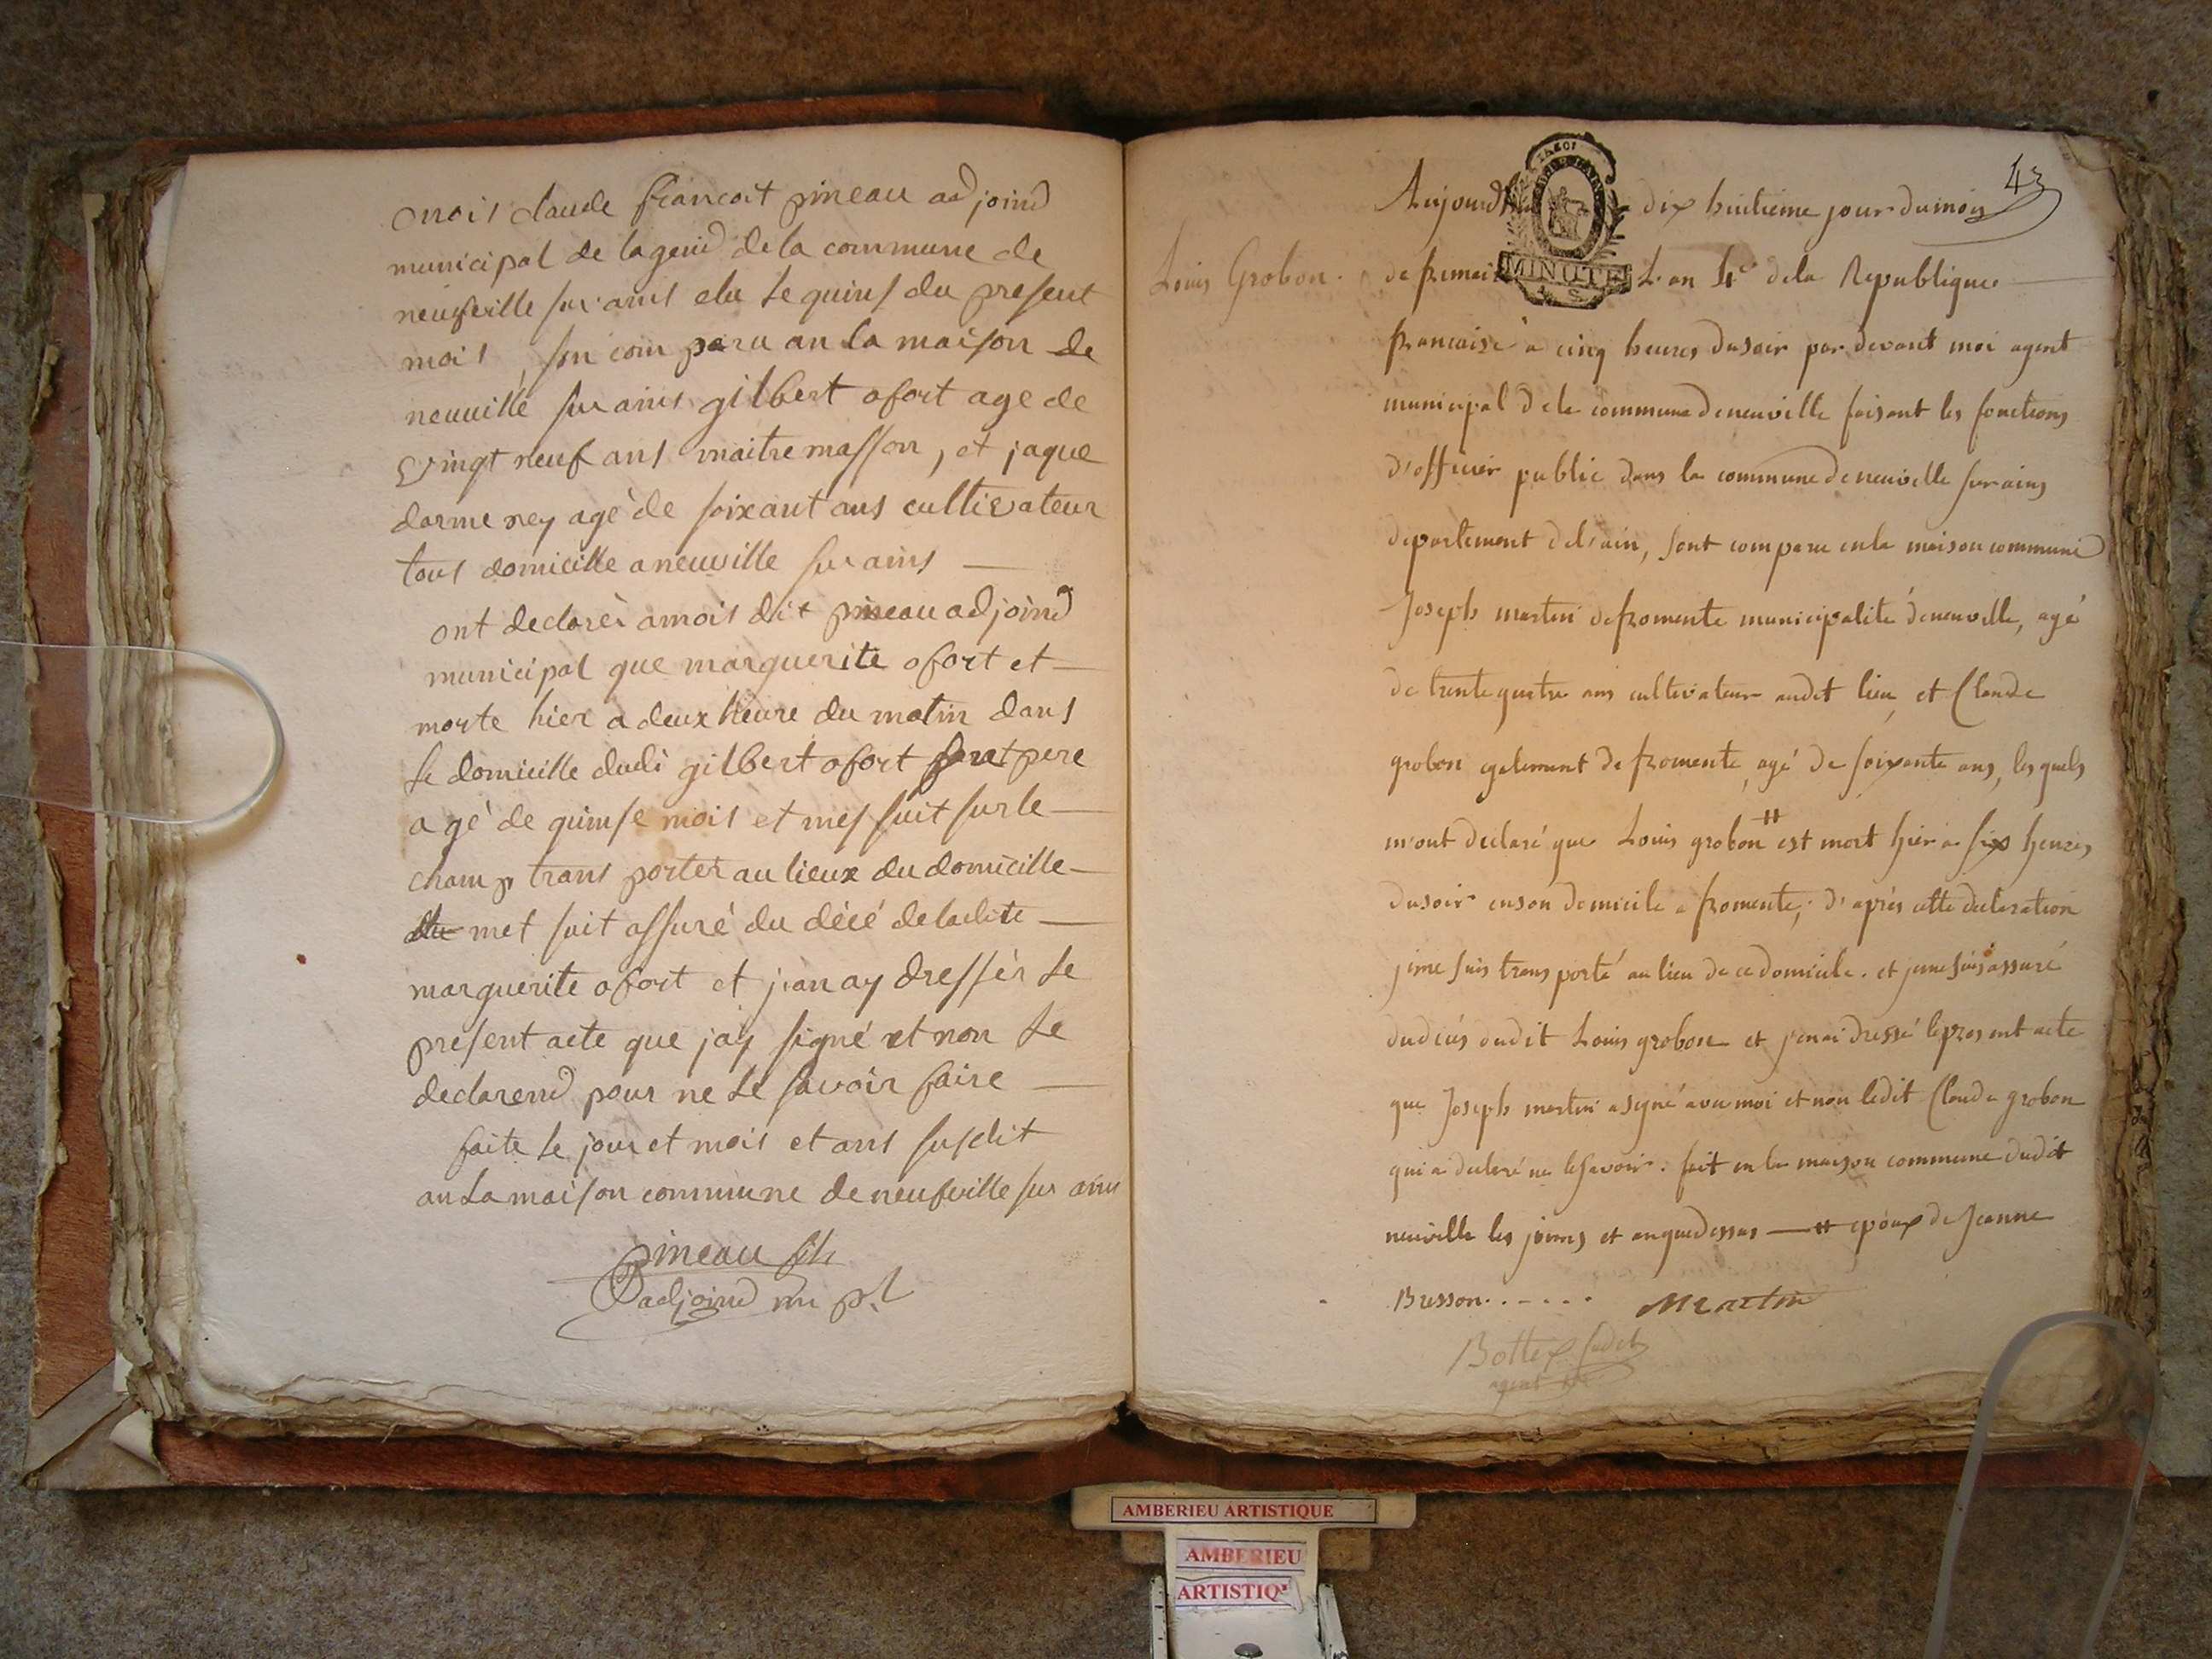 mois claude francoit pineau adjoind
municipal de lagend de la commune de
neufville sur ains elu le quins du present
mois, son comparu an la maison de
neuville sur ains gilbert ofort age de
vingt neuf ans maitre masson, et jaque
darmeney agè de soixant ans cultivateur
tous domicille a neuville sur ains
ont declarèr a mois dit pineau adjoind
municipal que marguerite ofort et
morte hier a deux heure du matin dans
le domicille dudi gilbert ofort pere
agè de quinse mois et mes suit sur le
champ trans porter au lieux du domicille
met suit assuré du décé de ladite
marguerite ofort et jan ay dressèr le
present acte que jay signé et non le
declarend pour ne le savoir faire
faite le jour et mois et ans susdit
an la maison commune de neufville sur ains
pineau fils
adjoind
43
MINUTE
Aujourd dix huitieme jour du mois
Louis Grobon.
de frimai L'an 4e de la Republique
francaise à cinq heures du soir par devant moi agent
municipal de la commune de neuville faisant les fonctions
d'officier public dans la commune de neuville sur ains
departement de l'ain, sont comparu en la maison commune
Joseph martin de fromente municipalité de neuville, agé
de trente quatre ans cultivateur audit lieu, et Claude
grobon egalement de fromente, agé de soixante ans, les quels
m'ont declaré que Louis grobon # est mort hier a six heures
du soir en son domicile a fromente, d'après cette declaration
je me suis transporté au lieu de ce domicile. et je me suis assuré
du decés dudit Louis grobon et j'en ai dressé le present acte
que Joseph martin a signé avec moi et non ledit Claude grobon
qui a declaré ne le savoir. fait en la maison commune dudit
neuville les jours et an que dessus — # epoux de Jeanne
Bresson.....
Martin
Bottex cadet
agent
AMBERIEU ARTISTIQUE
AMBERIEU
ARTISTIQ